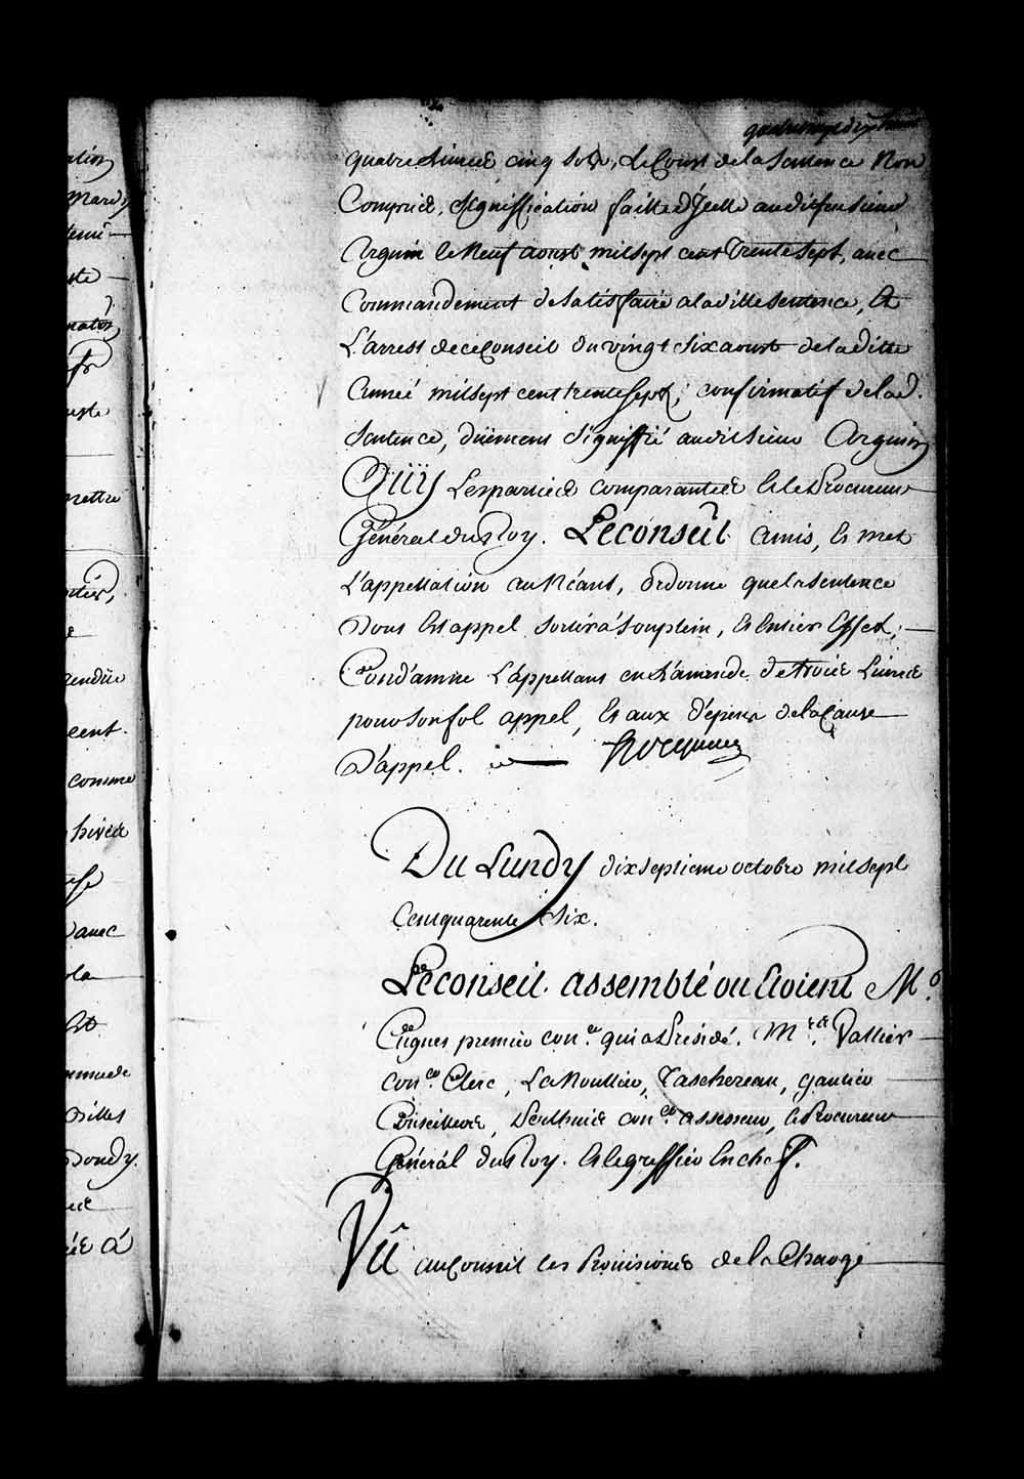 quatre livres cinq sols, Le Coust de la Sentence Non
Compris, Signiffication faitte d'Jcelle audit sieur
Arguin le Neuf aoust mil sept cent Trente sept, avec
Commandement de satisfaire a la ditte sentence, Et
L'arrest de ce Conseil du vingt six aoust de la ditte
année mil sept cent trente sept; confirmatif de lad.
Sentence, düement signiffié audit sieur Arguin
Oüy Les parties comparantes et le Procureur
Général du Roy. Le Conseil a mis, et met
L'appellation au Néant, ordonne que la sentence
Dont est appel sortira son plein, et entier Effet,
Condamne L'appellant en L'amende de trois Livres
pour son fol appel, et aux dépens de la Cause
D'appel.
Du Lundy dix septieme octobre mil sept
Cent quarente Six.
Le Conseil assemblé ou Etoient M.
Cugnet premier con.er qui a Présidé. M.rs Vallier
con.er Clerc, La Noullier, Taschereau, Gaultier
Conseillers, con.er assesseur, le Procureur
Général du Roy. et le greffier en chef.
Vû au Conseil les Provisions de la Charge
ation
comme
hiver
avec
la
Et
mettre
cent.